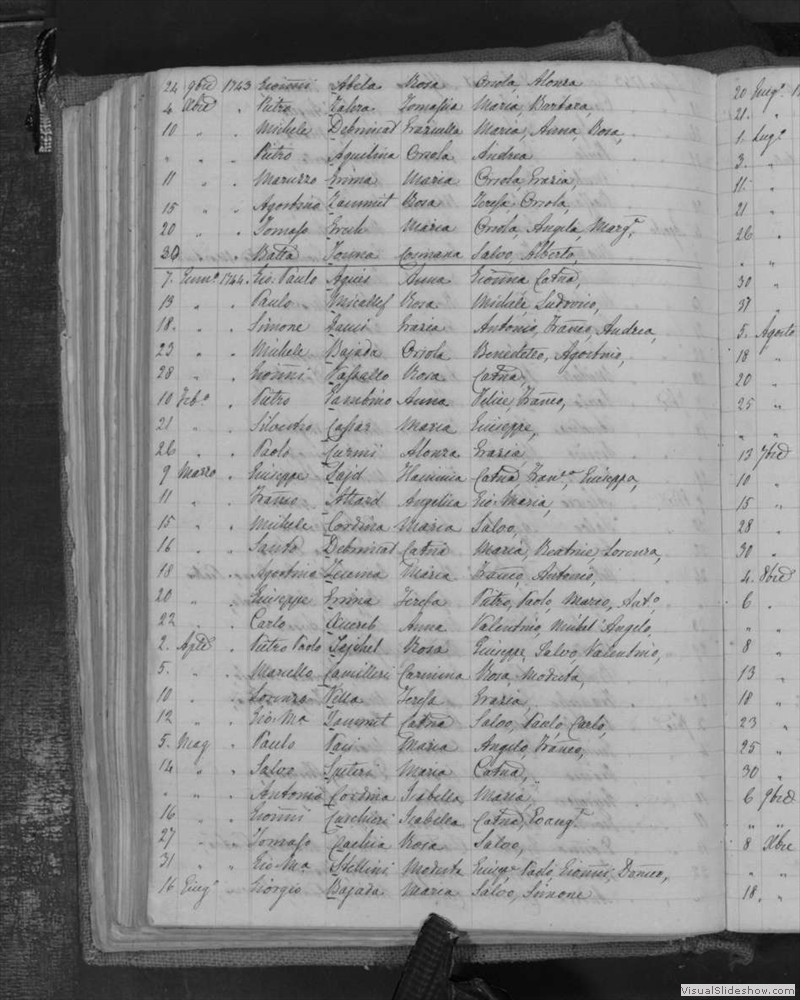 24 9bre 1743 Gionni Abela Rosa Orsola, Alonza
4 Xbre " Pietro Zahra Tomasia Maria, Barbara
10 " " Michele Debrincat Grazzulla Maria, Anna, Rosa,
" " " Pietro Aquilina Orsola Andrea
11 " " Maruzzo Grima Maria Orsola, Grazia,
15 " " Agostino Zammit Rosa Teresa, Orsola,
20 " " Tomaso Grech Maria Orsola, Angela, Marg.a
30 " " Batta Tonna Salvo, Alberto,
7. Genn.o 1744. Gio. Paulo Agius Anna Gionna Catna,
13 " " Paulo Micallef Rosa Michele, Ludovico,
18. " " Simone Gauci Grazia Antonio, Franco, Andrea,
23 " " Michele Bajada Orsola Benedetto, Agostino,
28 " " Gionni Vassallo Rosa Catna,
10 Feb.o " Pietro Anna Felice, Franco,
21 " " Silvestro Cassar Maria Giuseppe,
26 " " Paolo Curmi Alonza Grazia
9 Marzo " Giuseppe Said Flaminia Catna, Fran.ca, Giuseppa,
11 " " Franco Attard Angelica Gio Maria,
15 " " Michele Cordina Maria Salvo,
16 " " Santo Debrincat Catna Maria, Beatrice, Lorenza,
18 " " Agostino Maria Franco, Antonio,
20 " " Giuseppe Grima Teresa Pietro, Paolo, Marco, Ant.o,
22 " " Carlo Xuereb Anna Valentino, Michel'Angelo,
2. Aple " Pietro Paolo Rosa Giuseppe, Salvo, Valentino,
5. " " Marcello Camilleri Carmina Rosa, Modesta,
10 " " Lorenzo Vella Teresa Grazia,
12 " " Gio: Ma Zammit Catna Salvo, Paulo, Carlo,
5. Mag " Paulo Maria Angelo, Franco,
14 " " Salvo Spiteri Maria Catna,
" " " Antonio Cordina Isabella Maria,
16 " " Gionni Isabella Catna, Evang.a
27 " " Tomaso Rosa Salvo,
31 " " Gio: Ma Stellini Modesta Paolo, Gionni, Domco,
16 Giug.o " Giorgio Bajada Maria Salvo, Simone
20 Giug.o
21. "
1. Lug.o
3. "
11. "
21 "
26 "
" "
30 "
31 "
5. Agosto
18 "
20 "
25 "
" "
13 7bre
10 "
15 "
28 "
30 "
4. 8bre
6 "
" "
8 "
13 "
18 "
23 "
25 "
30 "
6 9bre
" "
8 Xbre
" "
18. "
VisualSlideshow.com